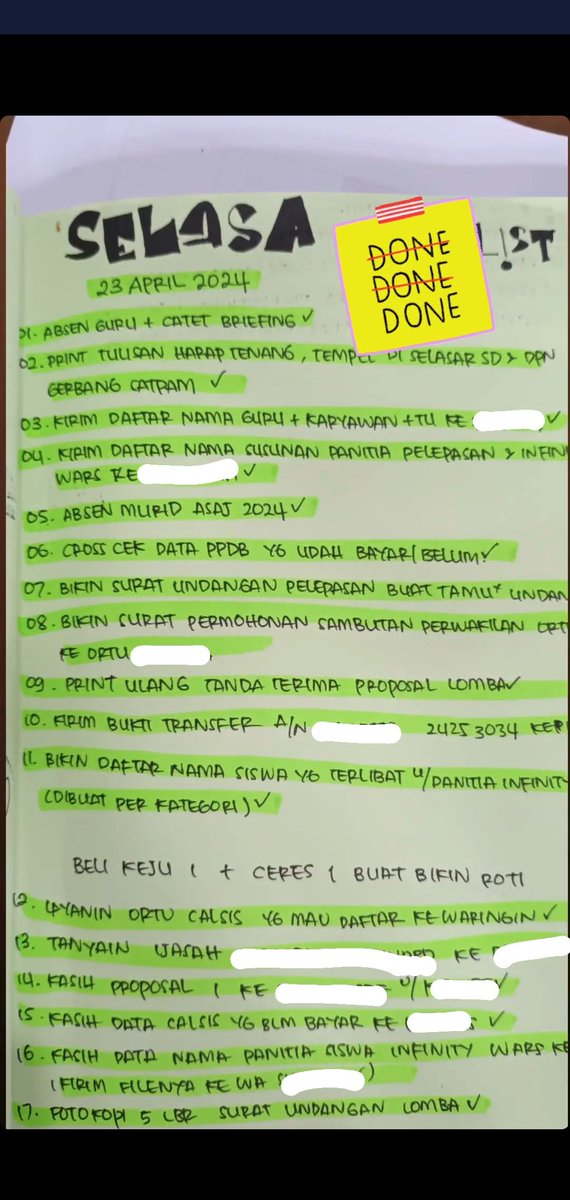 SELASA
L!ST
DONE
DONE
DONE
23 APRIL 2024
01. ABSEN GURU + CATET BRIEFING ✓
02. PRINT TULISAN HARAP TENANG, TEMPEL DI SELASAR SD & DPN
GERBANG CATPAM ✓
03. KIRIM DAFTAR NAMA GURU + KARYAWAN + TU KE ✓
04. KIRIM DAFTAR NAMA SUSUNAN PANITIA PELEPASAN & INFIN
WARS KE ✓
05. ABSEN MURID ASAJ 2024 ✓
06. CROSS CEK DATA PPDB YG UDAH BAYAR/BELUM ✓
07. BIKIN SURAT UNDANGAN PELEPASAN BUAT TAMU² UNDAN
08. BIKIN SURAT PERMOHONAN SAMBUTAN PERWAKILAN ORT
KE ORTU
09. PRINT ULANG TANDA TERIMA PROPOSAL LOMBA ✓
10. KIRIM BUKTI TRANSFER A/N 2425 3034 KE
11. BIKIN DAFTAR NAMA SISWA YG TERLIBAT U/PANITIA INFINITY
(DIBUAT PER KATEGORI) ✓
BELI KEJU 1 + CERES 1 BUAT BIKIN ROTI
12. LAYANIN ORTU CALSIS YG MAU DAFTAR KE WARINGIN ✓
13. TANYAIN IJASAH KE
14. KASIH PROPOSAL 1 KE U/ ✓
15. KASIH DATA CALSIS YG BLM BAYAR KE ✓
16. KASIH DATA NAMA PANITIA SISWA INFINITY WARS KE
(KIRIM FILENYA KE WA )
17. FOTOKOPI 5 LBR SURAT UNDANGAN LOMBA ✓